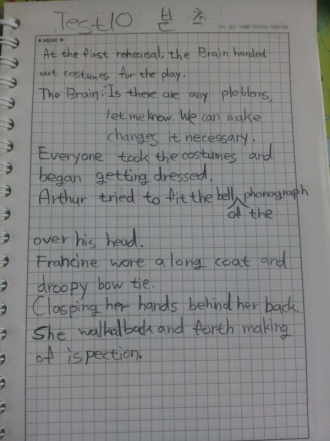 Test10 본 초
MEMO
At the first rehearsal, the Brain handed
out costumes for the play.
The Brain: Is there are any ploblems,
let me know. We can make
changes it necessary.
Everyone took the costumes and
began getting dressed.
Arthur tried to fit the bell phonograph
of the
over his head.
Francine wore a long coat and
droopy bow tie.
Closping her hands behind her back
She walked back and forth making
of ispection.